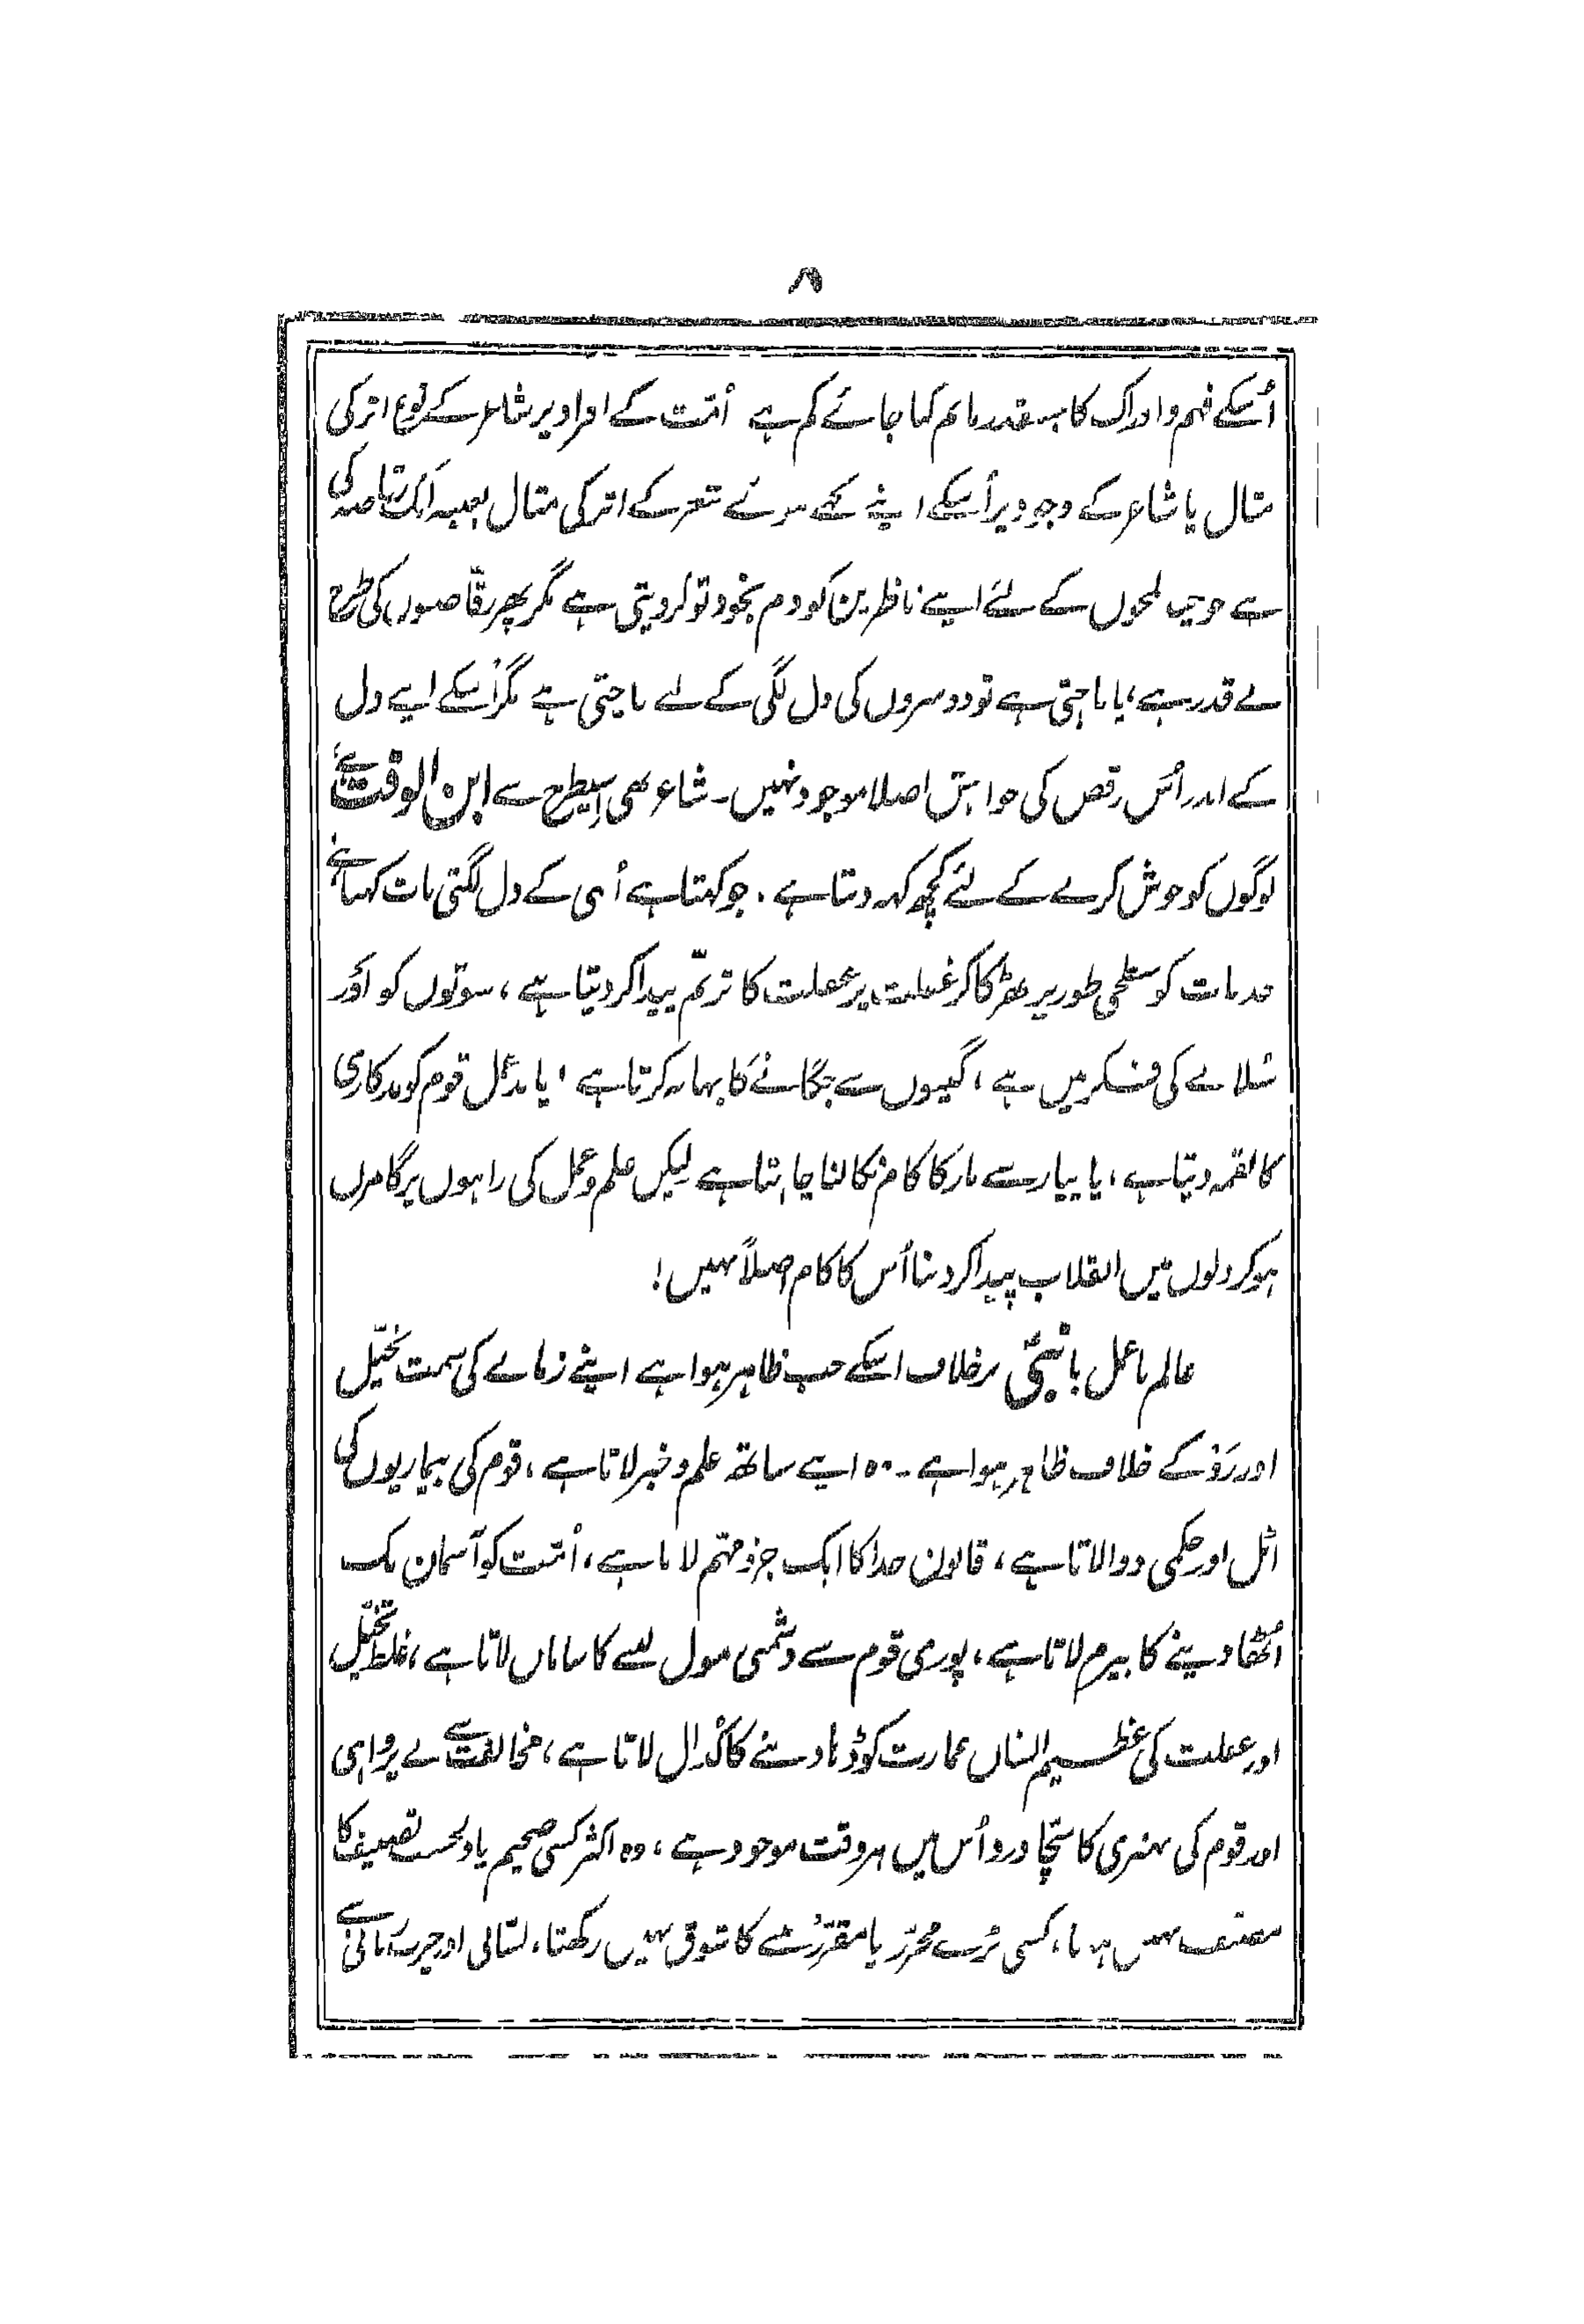 ۸
اُسکے فہم و ادراک کا جسقدر ماتم کیا جائے کم ہے اُمّت کے افراد پر شاعر کے نوع اثر کی
مثال یا شاعر کے وجود پر اُسکے اپنے کہے ہوئے شعر کے اثر کی مثال بعینہ ایک رقاصہ کی
ہے جو چند لمحوں کے لئے اپنے ناظرین کو دم بخود تو کر دیتی ہے مگر پھر رقّاصوں کی طرح
بے قدر ہے، یا ناچتی ہے تو دوسروں کی دل لگی کے لئے ناچتی ہے مگر اُسکے اپنے دل
کے اندر اُس رقص کی خواہش اصلا موجود نہیں۔ شاعر بھی اِسیطرح سے ابن الوقت ہے
لوگوں کو خوش کرنے کے لئے کچھ کہہ دیتا ہے۔ جو کہتا ہے اُسی کے دل لگتی بات کہتا ہے
جذبات کو سطحی طور پر بھڑکا کر غفلت پر غفلت کا ترنّم پیدا کر دیتا ہے، سوتوں کو اَوْر
سُلانے کی فکر میں ہے، گیتوں سے جگانے کا بہانہ کرتا ہے، یا بدعمل قوم کو بدکاری
کا لقمہ دیتا ہے، یا پیار سے مار کا کام نکالنا چاہتا ہے لیکن علم و عمل کی راہوں پر گامزن
ہو کر دلوں میں انقلاب پیدا کر دینا اُس کا کام اصلاً نہیں!
عالم باعمل یا نبیؐ برخلاف اسکے جب ظاہر ہوا ہے اپنے زمانے کی سمت تخیّل
اور رَوْ کے خلاف ظاہر ہوا ہے۔ وہ اپنے ساتھ علم و خبر لاتا ہے، قوم کی بیماریوں کی
اٹل اور حکمی دوا لاتا ہے، قانون خدا کا ایک جزو مہتم لاتا ہے، اُمّت کو آسمان تک
اُٹھا دینے کا بیرم لاتا ہے، پوری قوم سے دشمنی مول لینے کا ساماں لاتا ہے، غلط تخیّل
اور غفلت کی عظیم الشان عمارت کو ڈھا دینے کا کُدال لاتا ہے، مخالفت سے بے پرواہی
اور قوم کی بہتری کا سچّا درد اُس میں ہر وقت موجود ہے، وہ اکثر کسی ضخیم یا دلچسپ تصنیف کا
مصنف نہیں ہوتا، کسی بڑے محرّر یا مقرّر ہونے کا شوق نہیں رکھتا، لسّانی اور چرب زبانی سے